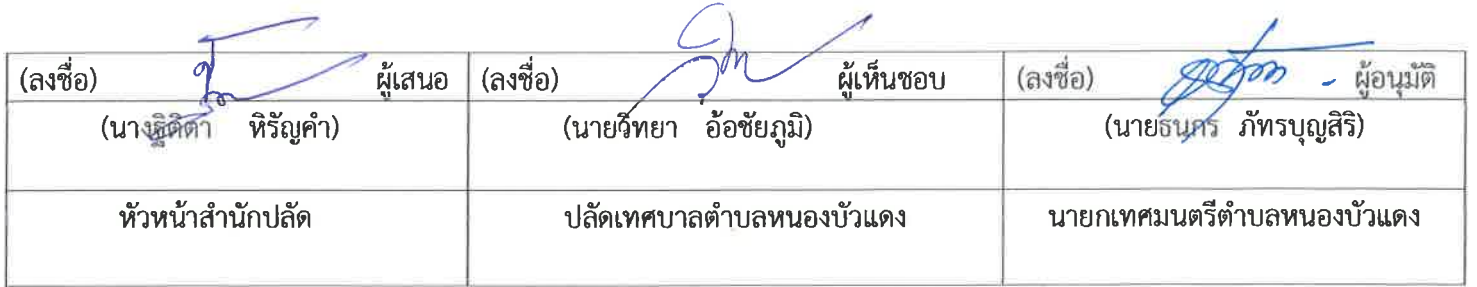 (ลงชื่อ) ผู้เสนอ (ลงชื่อ) ผู้เห็นชอบ (ลงชื่อ) ผู้อนุมัติ
(นางฐิติตา หิรัญคำ) (นายวิทยา อ้อชัยภูมิ) (นายธนกร ภัทรบุญสิริ)
หัวหน้าสำนักปลัด ปลัดเทศบาลตำบลหนองบัวแดง นายกเทศมนตรีตำบลหนองบัวแดง